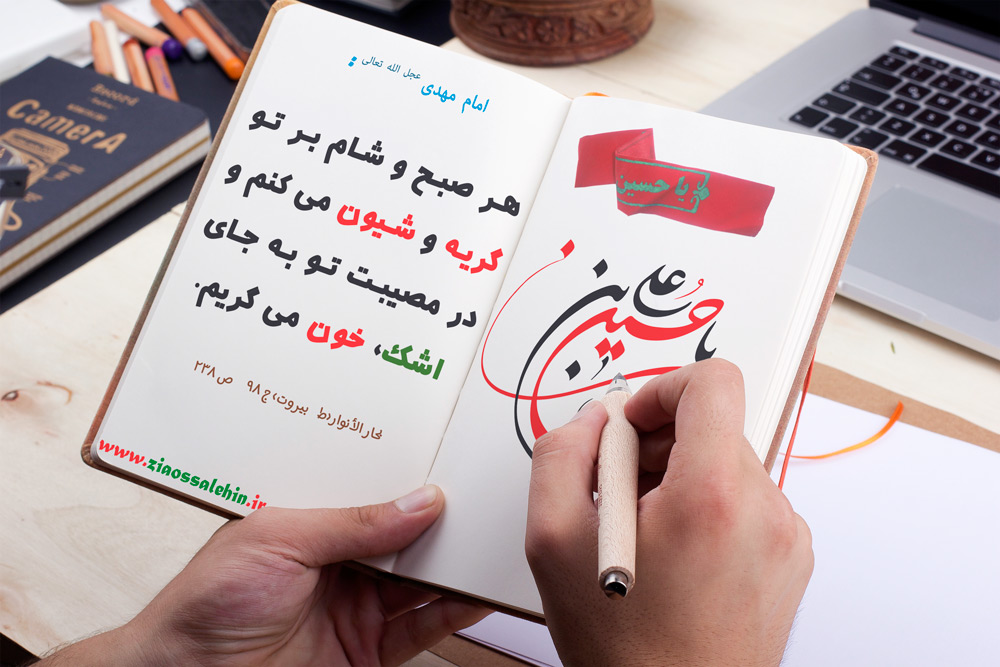 امام مهدی عجل الله تعالی :
هر صبح و شام بر تو
گریه و شیون می کنم و
در مصیبت تو به جای
اشک، خون می گریم.
بحارالأنوار(ط بیروت)ج ۹۸ ص ۲۳۸
www.ziaossalehin.ir
یا حسین
حسین
بن
علی
Record
CamerA